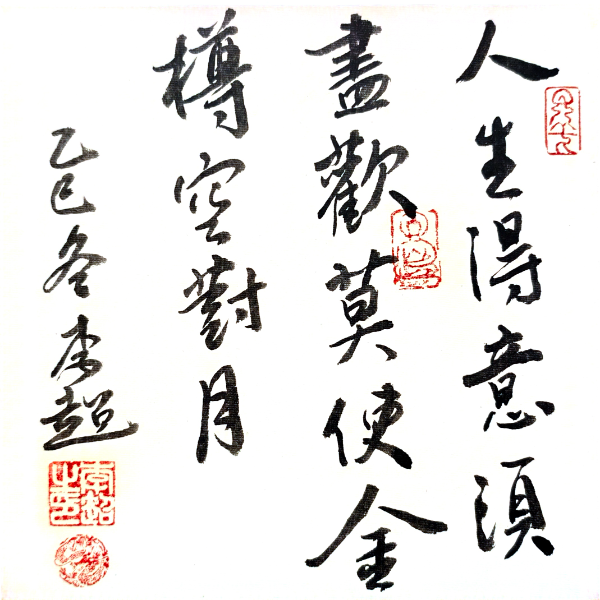 人生得意須
盡歡莫使金
樽空對月
乙巳冬李超